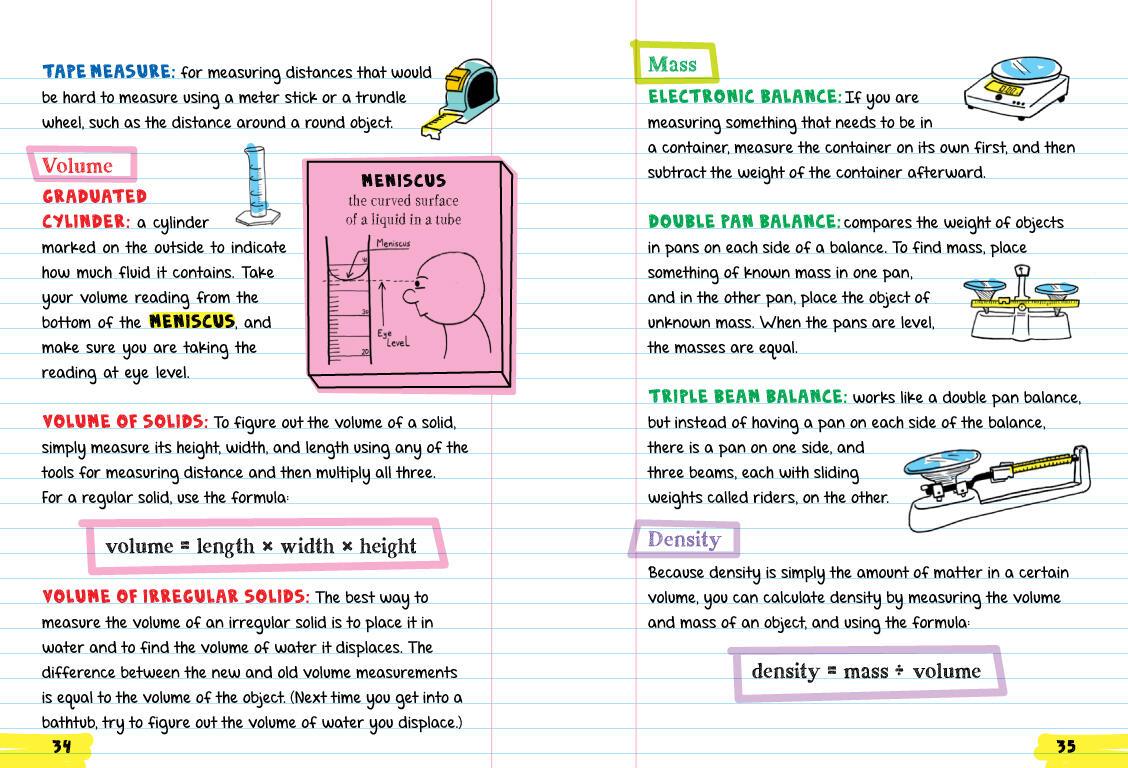 TAPE MEASURE: for measuring distances that would
be hard to measure using a meter stick or a trundle
wheel, such as the distance around a round object.
Volume
GRADUATED
CYLINDER: a cylinder
marked on the outside to indicate
how much fluid it contains. Take
your volume reading from the
bottom of the MENISCUS, and
make sure you are taking the
reading at eye level.
MENISCUS
the curved surface
of a liquid in a tube
Meniscus
30
Eye
Level
20
VOLUME OF SOLIDS: To figure out the volume of a solid,
simply measure its height, width, and length using any of the
tools for measuring distance and then multiply all three.
For a regular solid, use the formula:
volume = length × width × height
VOLUME OF IRREGULAR SOLIDS: The best way to
measure the volume of an irregular solid is to place it in
water and to find the volume of water it displaces. The
difference between the new and old volume measurements
is equal to the volume of the object. (Next time you get into a
bathtub, try to figure out the volume of water you displace.)
34
Mass
ELECTRONIC BALANCE: If you are
measuring something that needs to be in
a container, measure the container on its own first, and then
subtract the weight of the container afterward.
DOUBLE PAN BALANCE: compares the weight of objects
in pans on each side of a balance. To find mass, place
something of known mass in one pan,
and in the other pan, place the object of
unknown mass. When the pans are level,
the masses are equal.
TRIPLE BEAN BALANCE: works like a double pan balance,
but instead of having a pan on each side of the balance,
there is a pan on one side, and
three beams, each with sliding
weights called riders, on the other.
Density
Because density is simply the amount of matter in a certain
volume, you can calculate density by measuring the volume
and mass of an object, and using the formula:
density = mass ÷ volume
35